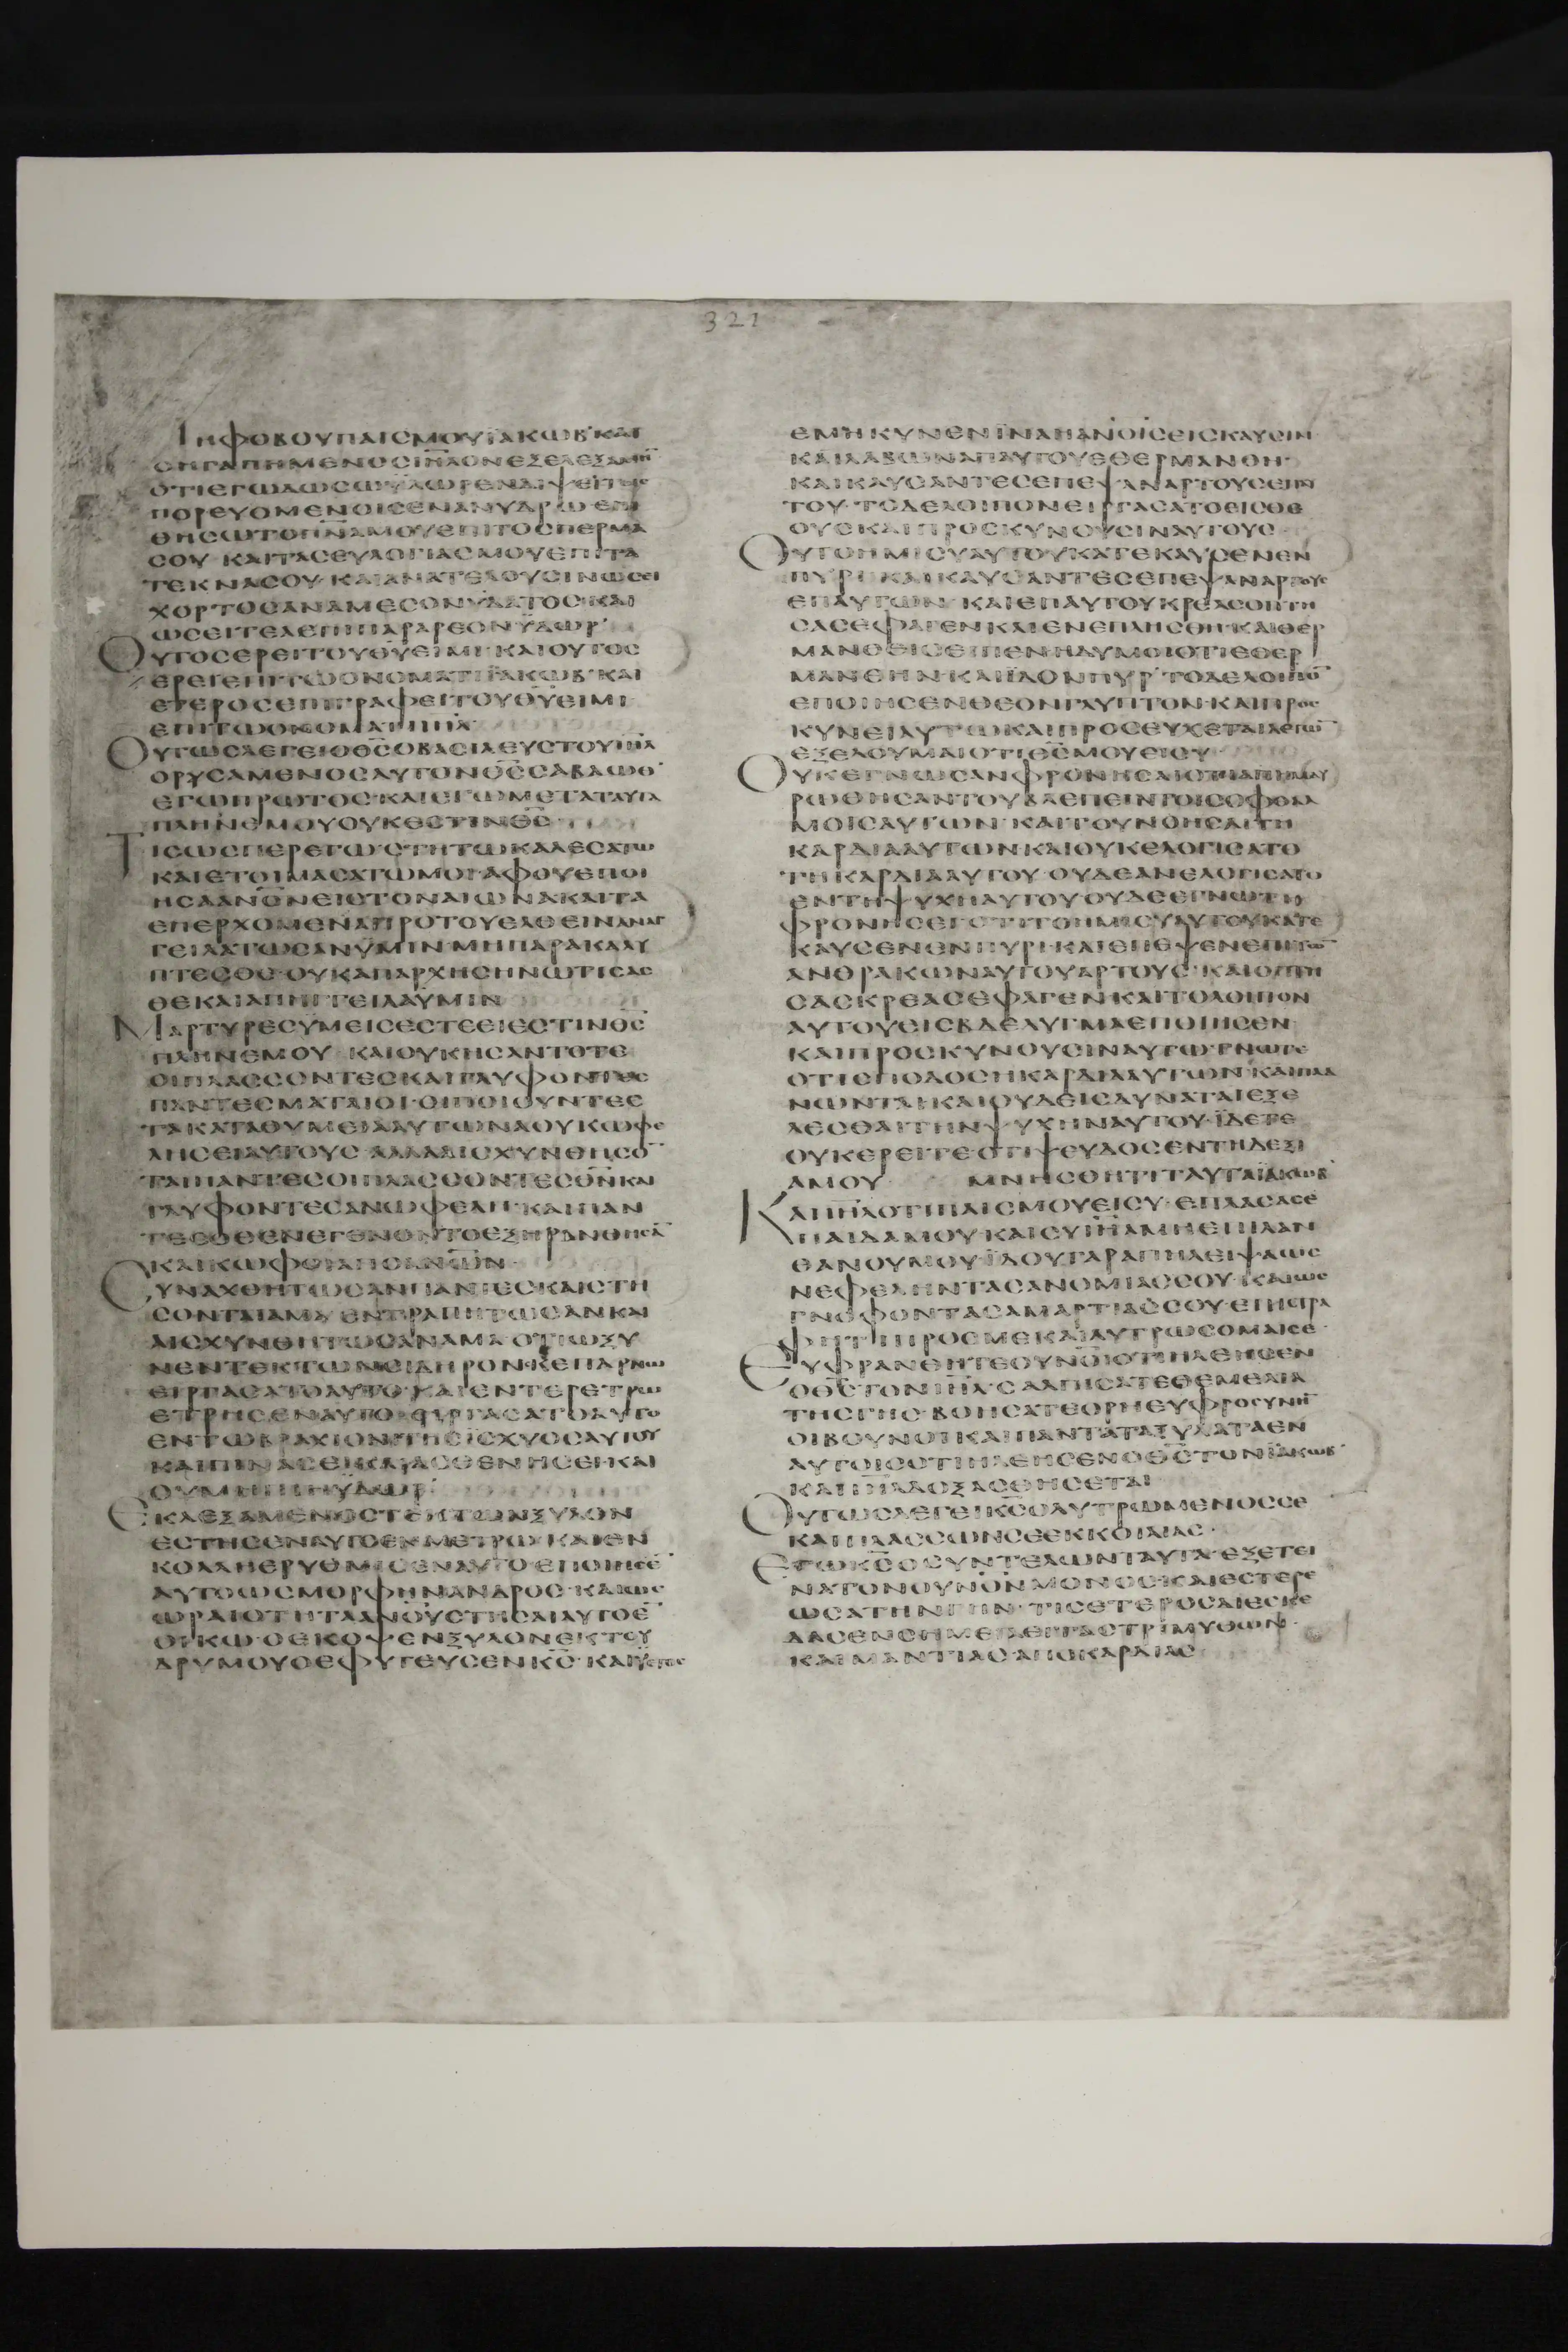 321
ΙΗΦΟΒΟΥΠΑΙΣΜΟΥΪΑΚΩΒ·ΚΑΙ
ΟΗΓΑΠΗΜΕΝΟΣΙΗΛΟΝΕΞΕΛΕΞΑΜΗ̅
ΟΤΙΕΓΩΔΩΣΩΥΔΩΡΕΝΔΙΨΕΙΤΟΙΣ
ΠΟΡΕΥΟΜΕΝΟΙΣΕΝΑΝΥΔΡΩ·ΕΠΙ
ΘΗΣΩΤΟΠ̅Ν̅ΑΜΟΥΕΠΙΤΟΣΠΕΡΜΑ
ΣΟΥ·ΚΑΙΤΑΣΕΥΛΟΓΙΑΣΜΟΥΕΠΙΤΑ
ΤΕΚΝΑΣΟΥ·ΚΑΙΑΝΑΤΕΛΟΥΣΙΝΩΣΕΙ
ΧΟΡΤΟΣΑΝΑΜΕΣΟΝΥΔΑΤΟΣ·ΚΑΙ
ΩΣΕΙΙΤΕΑΕΠΙΠΑΡΑΡΕΟΝΫΔΩΡ·
ΟΥΤΟΣΕΡΕΙΤΟΥΘ̅Υ̅ΕΙΜΙ·ΚΑΙΟΥΤΟΣ
ΕΡΕΙΕΠΙΤΩΟΝΟΜΑΤΙΪΑΚΩΒ·ΚΑΙ
ΕΤΕΡΟΣΕΠΙΓΡΑΦΕΙΤΟΥΘ̅Υ̅ΕΙΜΙ
ΕΠΙΤΩΟΝΟΜΑΤΙΙ̅Η̅Λ̅
ΟΥΤΩΣΛΕΓΕΙΟΘ̅Σ̅ΟΒΑΣΙΛΕΥΣΤΟΥΙ̅Η̅Λ̅
ΟΡΥΣΑΜΕΝΟΣΑΥΤΟΝΟΘ̅Σ̅ΣΑΒΑΩΘ·
ΕΓΩΠΡΩΤΟΣ·ΚΑΙΕΓΩΜΕΤΑΤΑΥΤΑ
ΠΛΗΝΕΜΟΥΟΥΚΕΣΤΙΝΘ̅Σ̅·
ΤΙΣΩΣΠΕΡΕΓΩ·ΣΤΗΤΩΚΑΛΕΣΑΤΩ
ΚΑΙΕΤΟΙΜΑΣΑΤΩΜΟΙ·ΑΦΟΥΕΠΟΙ
ΗΣΑΑΝΟ̅Ν̅ΕΙΣΤΟΝΑΙΩΝΑΚΑΙΤΑ
ΕΠΕΡΧΟΜΕΝΑΠΡΟΤΟΥΕΛΘΕΙΝΑΝΑΓ
ΓΕΙΛΑΤΩΣΑΝΫΜΙΝ·ΜΗΠΑΡΑΚΑΛΥ
ΠΤΕΣΘΕ·ΟΥΚΑΠΑΡΧΗΣΗΝΩΤΙΣΑΣ
ΘΕΚΑΙΑΠΗΓΓΕΙΛΑΥΜΙΝ
ΜΑΡΤΥΡΕΣΥΜΕΙΣΕΣΤΕΕΙΕΣΤΙΝΘ̅Σ̅
ΠΛΗΝΕΜΟΥ·ΚΑΙΟΥΚΗΣΑΝΤΟΤΕ
ΟΙΠΛΑΣΣΟΝΤΕΣΚΑΙΓΛΥΦΟΝΤΕΣ
ΠΑΝΤΕΣΜΑΤΑΙΟΙ·ΟΙΠΟΙΟΥΝΤΕΣ
ΤΑΚΑΤΑΘΥΜΕΙΑΑΥΤΩΝΑΟΥΚΩΦΕ
ΛΗΣΕΙΑΥΤΟΥΣ·ΑΛΛΑΑΙΣΧΥΝΘΗΣΟ̅
ΤΑΙΠΑΝΤΕΣΟΙΠΛΑΣΣΟΝΤΕΣΘ̅Ν̅ΚΑΙ
ΓΛΥΦΟΝΤΕΣΑΝΩΦΕΛΗ·ΚΑΙΠΑΝ
ΤΕΣΟΘΕΝΕΓΕΝΟΝΤΟΕΞΗΡΑΝΘΗΣΑ̅
ΚΑΙΚΩΦΟΙΑΠΟΑΝ̅Ω̅Ν̅·
ΣΥΝΑΧΘΗΤΩΣΑΝΠΑΝΤΕΣΚΑΙΣΤΗ
ΣΟΝΤΑΙΑΜΑ·ΕΝΤΡΑΠΗΤΩΣΑΝΚΑΙ
ΑΙΣΧΥΝΘΗΤΩΣΑΝΑΜΑ·ΟΤΙΩΞΥ
ΝΕΝΤΕΚΤΩΝΣΙΔΗΡΟΝ·ΣΚΕΠΑΡΝΩ
ΕΙΡΓΑΣΑΤΟΑΥΤΟ·ΚΑΙΕΝΤΕΡΕΤΡΩ
ΕΤΡΗΣΕΝΑΥΤΟ·ΕΙΡΓΑΣΑΤΟΑΥΤΟ
ΕΝΤΩΒΡΑΧΙΟΝΙΤΗΣΪΣΧΥΟΣΑΥΤΟΥ
ΚΑΙΠΙΝΑΣΕΙΚΑΙΑΣΘΕΝΗΣΕΙ·ΚΑΙ
ΟΥΜΗΠΙΗΥΔΩΡ·
ΕΚΛΕΞΑΜΕΝΟΣΤΕΚΤΩΝΞΥΛΟΝ
ΕΣΤΗΣΕΝΑΥΤΟΕΝΜΕΤΡΩ·ΚΑΙΕΝ
ΚΟΛΛΗΕΡΥΘΜΙΣΕΝΑΥΤΟ·ΕΠΟΙΗΣΕ̅
ΑΥΤΟΩΣΜΟΡΦΗΝΑΝΔΡΟΣ·ΚΑΙΩΣ
ΩΡΑΙΟΤΗΤΑΑΝ̅Ο̅Υ̅ΣΤΗΣΑΙΑΥΤΟΕ̅
ΟΙΚΩ·ΟΕΚΟΨΕΝΞΥΛΟΝΕΚΤΟΥ
ΔΡΥΜΟΥΟΕΦΥΤΕΥΣΕΝΚ̅Σ̅·ΚΑΙΫΕΤΟΣ
ΕΜΗΚΥΝΕΝΪΝΑΗΑΝ̅Ο̅ΙΣΕΙΣΚΑΥΣΙΝ
ΚΑΙΛΑΒΩΝΑΠΑΥΤΟΥΕΘΕΡΜΑΝΘΗ·
ΚΑΙΚΑΥΣΑΝΤΕΣΕΠΕΨΑΝΑΡΤΟΥΣΕΠΑΥ
ΤΟΥ·ΤΟΔΕΛΟΙΠΟΝΕΙΡΓΑΣΑΤΟΕΙΣΘΕ
ΟΥΣΚΑΙΠΡΟΣΚΥΝΟΥΣΙΝΑΥΤΟΥΣ
ΟΥΤΟΗΜΙΣΥΑΥΤΟΥΚΑΤΕΚΑΥΣΕΝΕΝ
ΠΥΡΙ·ΚΑΙΚΑΥΣΑΝΤΕΣΕΠΕΨΑΝΑΡΤΟΥΣ
ΕΠΑΥΤΩΝ·ΚΑΙΕΠΑΥΤΟΥΚΡΕΑΣΟΠΤΗ
ΣΑΣΕΦΑΓΕΝΚΑΙΕΝΕΠΛΗΣΘΗ·ΚΑΙΘΕΡ
ΜΑΝΘΕΙΣΕΙΠΕΝΗΔΥΜΟΙΟΤΙΕΘΕΡ
ΜΑΝΘΗΝ·ΚΑΙΪΔΟΝΠΥΡ·ΤΟΔΕΛΟΙΠΟ̅
ΕΠΟΙΗΣΕΝΘΕΟΝΓΛΥΠΤΟΝ·ΚΑΙΠΡΟΣ
ΚΥΝΕΙΑΥΤΩΚΑΙΠΡΟΣΕΥΧΕΤΑΙΛΕΓΩ̅
ΕΞΕΛΟΥΜΑΙΟΤΙΘ̅Σ̅ΜΟΥΕΙΣΥ
ΟΥΚΕΓΝΩΣΑΝΦΡΟΝΗΣΑΙΟΤΙΑΠΗΜΑΥ
ΡΩΘΗΣΑΝΤΟΥΒΛΕΠΕΙΝΤΟΙΣΟΦΘΑΛ
ΜΟΙΣΑΥΤΩΝ·ΚΑΙΤΟΥΝΟΗΣΑΙΤΗ
ΚΑΡΔΙΑΑΥΤΩΝΚΑΙΟΥΚΕΛΟΓΙΣΑΤΟ
ΤΗΚΑΡΔΙΑΑΥΤΟΥ·ΟΥΔΕΑΝΕΛΟΓΙΣΑΤΟ
ΕΝΤΗΨΥΧΗΑΥΤΟΥΟΥΔΕΕΓΝΩΤΗ
ΦΡΟΝΗΣΕΙΟΤΙΤΟΗΜΙΣΥΑΥΤΟΥΚΑΤΕ
ΚΑΥΣΕΝΕΝΠΥΡΙ·ΚΑΙΕΠΕΨΕΝΕΠΙΤΩ̅
ΑΝΘΡΑΚΩΝΑΥΤΟΥΑΡΤΟΥΣ·ΚΑΙΟΠΤΗ
ΣΑΣΚΡΕΑΣΕΦΑΓΕΝΚΑΙΤΟΛΟΙΠΟΝ
ΑΥΤΟΥΕΙΣΒΔΕΛΥΓΜΑΕΠΟΙΗΣΕΝ
ΚΑΙΠΡΟΣΚΥΝΟΥΣΙΝΑΥΤΩ·ΓΝΩΤΕ
ΟΤΙΣΠΟΔΟΣΗΚΑΡΔΙΑΑΥΤΩΝ·ΚΑΙΠΛΑ
ΝΩΝΤΑΙ·ΚΑΙΟΥΔΕΙΣΔΥΝΑΤΑΙΕΞΕ
ΛΕΣΘΑΙΤΗΝΨΥΧΗΝΑΥΤΟΥ·ΪΔΕΤΕ
ΟΥΚΕΡΕΙΤΕΟΤΙΨΕΥΔΟΣΕΝΤΗΔΕΞΙ
ΑΜΟΥ ΜΝΗΣΘΗΤΙΤΑΥΤΑΪΑΚΩΒ
ΚΑΙΙ̅Η̅Λ̅ΟΤΙΠΑΙΣΜΟΥΕΙΣΥ·ΕΠΛΑΣΑΣΕ
ΠΑΙΔΑΜΟΥ·ΚΑΙΣΥΙ̅Η̅Λ̅ΜΗΕΠΙΛΑΝ
ΘΑΝΟΥΜΟΥ·ΪΔΟΥΓΑΡΑΠΗΛΕΙΨΑΩΣ
ΝΕΦΕΛΗΝΤΑΣΑΝΟΜΙΑΣΣΟΥ·ΚΑΙΩΣ
ΓΝΟΦΟΝΤΑΣΑΜΑΡΤΙΑΣΣΟΥ·ΕΠΙΣΤΡΑ
ΦΗΤΙΠΡΟΣΜΕΚΑΙΛΥΤΡΩΣΟΜΑΙΣΕ·
ΕΥΦΡΑΝΘΗΤΕΟΥΝΟΙΟΤΙΗΛΕΗΣΕΝ
ΟΘ̅Σ̅ΤΟΝΙ̅Η̅Λ̅·ΣΑΛΠΙΣΑΤΕΘΕΜΕΛΙΑ
ΤΗΣΓΗΣ·ΒΟΗΣΑΤΕΟΡΗΕΥΦΡΟΣΥΝΗ̅
ΟΙΒΟΥΝΟΙΚΑΙΠΑΝΤΑΤΑΞΥΛΑΤΑΕΝ
ΑΥΤΟΙΣΟΤΙΗΛΕΗΣΕΝΟΘ̅Σ̅ΤΟΝΪΑΚΩΒ·
ΚΑΙΙ̅Η̅Λ̅ΔΟΞΑΣΘΗΣΕΤΑΙ
ΟΥΤΩΣΛΕΓΕΙΚ̅Σ̅ΟΛΥΤΡΩΜΕΝΟΣΣΕ
ΚΑΙΠΛΑΣΣΩΝΣΕΕΚΚΟΙΛΙΑΣ·
ΕΓΩΚ̅Σ̅ΟΣΥΝΤΕΛΩΝΤΑΥΤΑ·ΕΞΕΤΕΙ
ΝΑΤΟΝΟΥΝ̅Ο̅Ν̅ΜΟΝΟΣ·ΚΑΙΕΣΤΕΡΕ
ΩΣΑΤΗΝΓΗΝ·ΤΙΣΕΤΕΡΟΣΔΙΕΣΚΕ
ΔΑΣΕΝΣΗΜΕΙΑΕΓΓΑΣΤΡΙΜΥΘΩΝ
ΚΑΙΜΑΝΤΙΑΣΑΠΟΚΑΡΔΙΑΣ